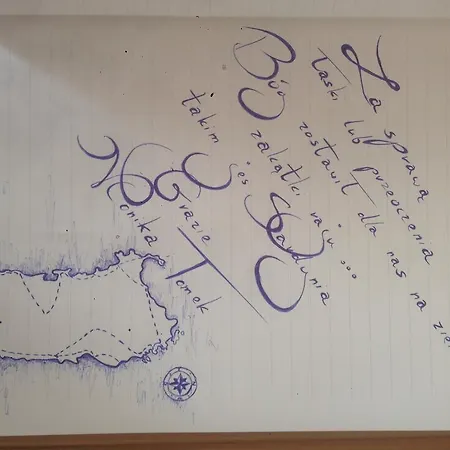 Za sprawą
łaski lub przeoczenia
Bóg zostawił dla nas na zie
zakątki raju ...
takim jest Sardynia
Grazie
Monika Tomek